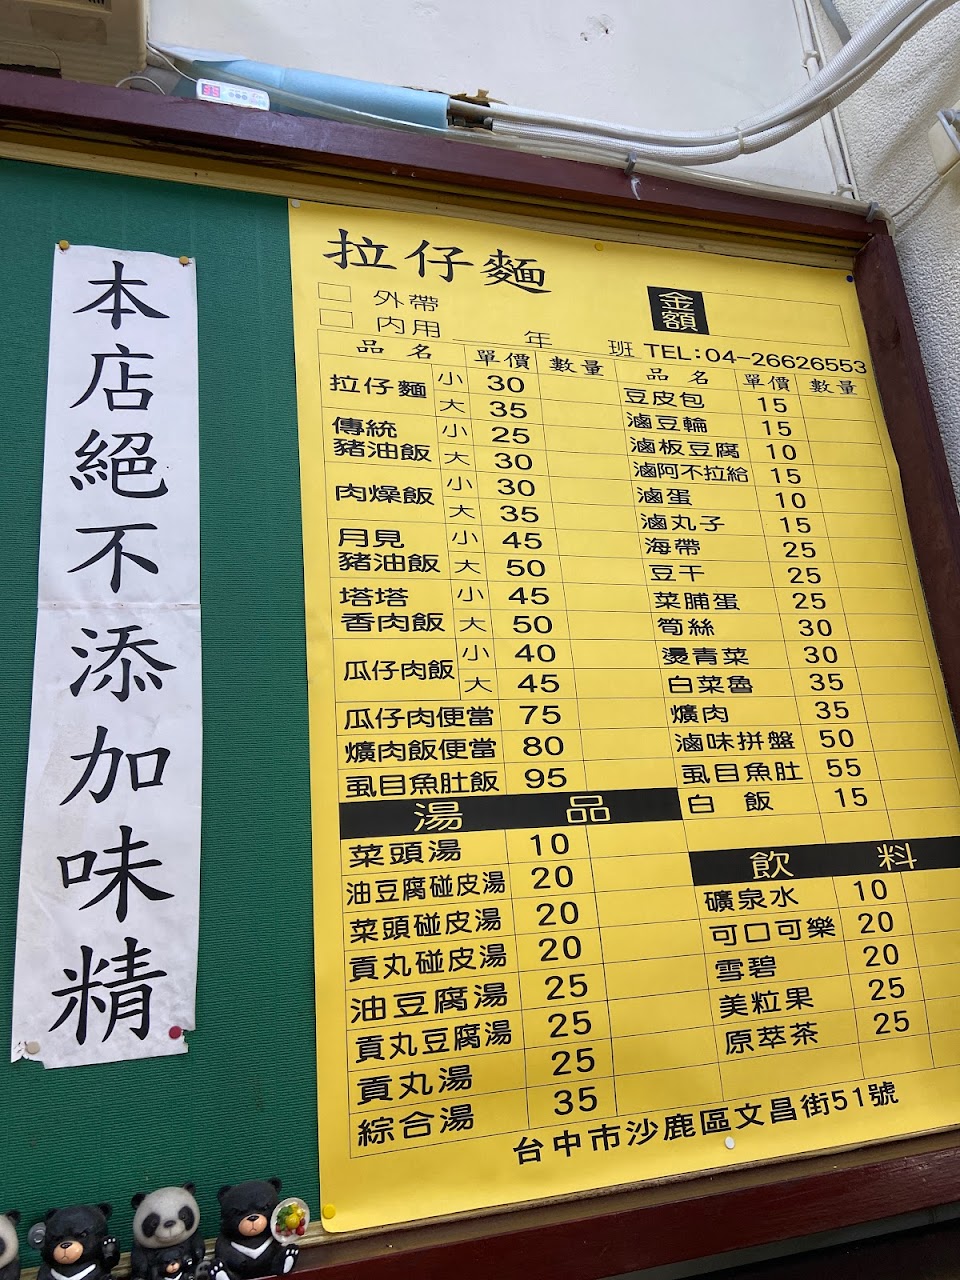 本店絕不添加味精
拉仔麵
外帶
金額
內用 年 班 TEL:04-26626553
品名 單價 數量
拉仔麵 小 30
大 35
傳統豬油飯 小 25
大 30
肉燥飯 小 30
大 35
月見豬油飯 小 45
大 50
塔塔香肉飯 小 45
大 50
瓜仔肉飯 小 40
大 45
瓜仔肉便當 75
爌肉飯便當 80
虱目魚肚飯 95
湯品
菜頭湯 10
油豆腐碰皮湯 20
菜頭碰皮湯 20
貢丸碰皮湯 20
油豆腐湯 25
貢丸豆腐湯 25
貢丸湯 25
綜合湯 35
品名 單價 數量
豆皮包 15
滷豆輪 15
滷板豆腐 10
滷阿不拉給 15
滷蛋 10
滷丸子 15
海帶 25
豆干 25
菜脯蛋 25
筍絲 30
燙青菜 30
白菜魯 35
爌肉 35
滷味拼盤 50
虱目魚肚 55
白飯 15
飲料
礦泉水 10
可口可樂 20
雪碧 20
美粒果 25
原萃茶 25
台中市沙鹿區文昌街51號